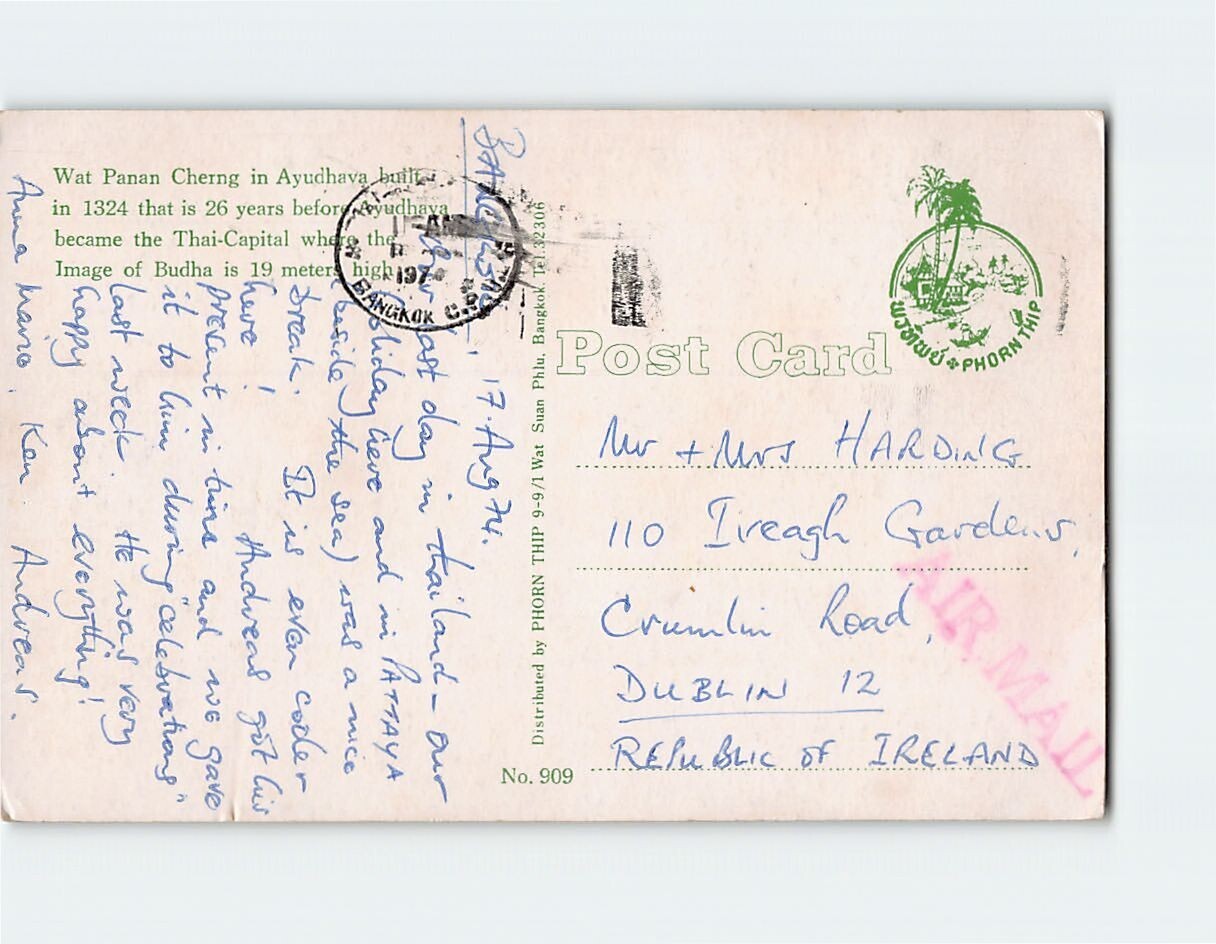 Wat Panan Cherng in Ayudhava built
in 1324 that is 26 years before Ayudhava
became the Thai-Capital where the
Image of Budha is 19 meters high
BANGKOK
17. Aug 74.
Our last day in thailand - our
holiday here and in PATTAYA
(beside the sea) was a nice
break. It is even cooler
here! Andreas got his
present in time and we gave
it to him during "celebrations"
last week. He was very
happy about everything!
Anna Maria. Ken. Andreas.
BANGKOK
197
Distributed by PHORN THIP 9-9/1 Wat Suan Phlu, Bangkok. Tel.32306
No. 909
พรทิพย์ PHORN THIP
Post Card
Mr + Mrs HARDING
110 Iveagh Gardens,
Crumlin Road,
DUBLIN 12
REPUBLIC OF IRELAND
AIR MAIL